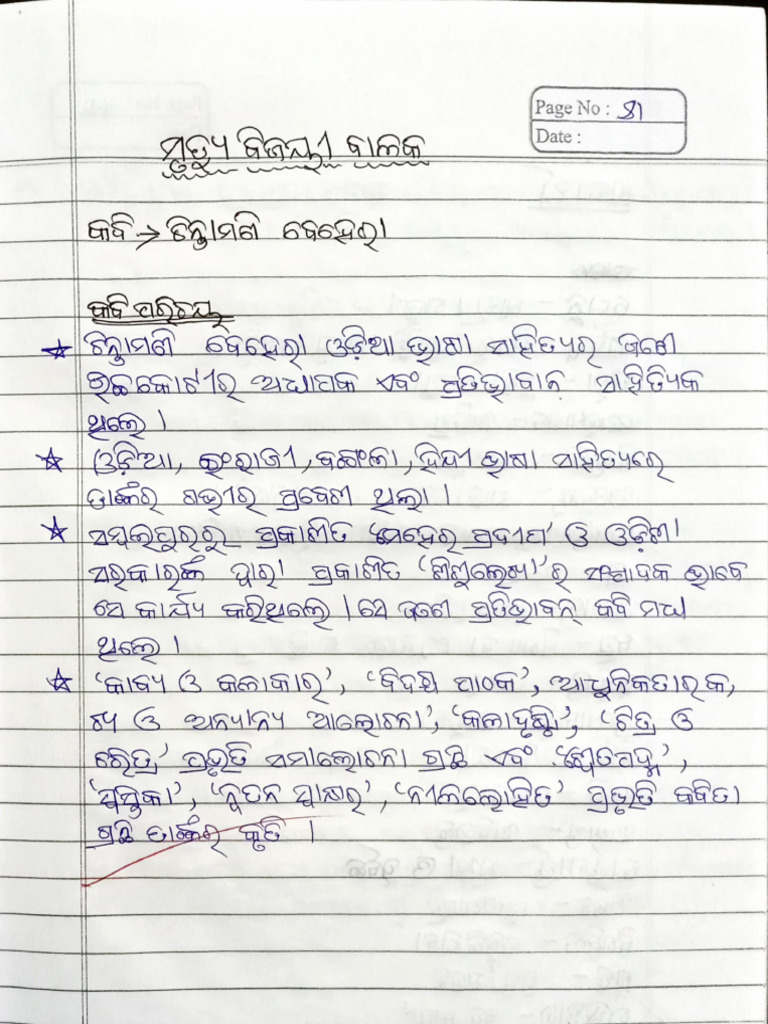 Page No : ୫୲
Date :
ମୃତ୍ୟୁ ବିଜୟୀ ବାଳକ
କବି → ଚିନ୍ତାମଣି ବେହେରା
କବି ପରିଚୟ
☆ ଚିନ୍ତାମଣି ବେହେରା ଓଡ଼ିଆ ଭାଷା ସାହିତ୍ୟର ଜଣେ
ଉଚ୍ଚକୋଟୀର ଅଧ୍ୟାପକ ଏବଂ ପ୍ରତିଭାବାନ୍ ସାହିତ୍ୟିକ
ଥିଲେ ।
☆ ଓଡ଼ିଆ, ଇଂରାଜୀ, ବଙ୍ଗଳା, ହିନ୍ଦୀ ଭାଷା ସାହିତ୍ୟରେ
ତାଙ୍କର ଗଭୀର ପ୍ରବେଶ ଥିଲା ।
☆ ସମ୍ବଲପୁରରୁ ପ୍ରକାଶିତ 'ମେହେର ପ୍ରଦୀପ' ଓ ଓଡ଼ିଶା
ସରକାରଙ୍କ ଦ୍ୱାରା ପ୍ରକାଶିତ 'ଶିଶୁଲେଖା'ର ସଂପାଦକ ଭାବେ
ସେ କାର୍ଯ୍ୟ କରିଥିଲେ । ସେ ଜଣେ ପ୍ରତିଭାବାନ୍ କବି ମଧ୍ୟ
ଥିଲେ ।
☆ 'କାବ୍ୟ ଓ କଳାକାର', 'ବିଦଗ୍ଧ ପାଠକ', ଆଧୁନିକତାର କ,
ଖ୍ୟ ଓ ଅନ୍ୟାନ୍ୟ ଆଲୋଚନା', 'କଳାଦୃଷ୍ଟି', 'ଚିତ୍ର ଓ
ଚରିତ୍ର' ପ୍ରଭୃତି ସମାଲୋଚନା ଗ୍ରନ୍ଥ ଏବଂ 'ଶ୍ୱେତପଦ୍ମ',
'ସ୍ୱସ୍ତିକା', 'ନୂତନ ସ୍ୱାକ୍ଷର', 'ନୀଳଲୋହିତ' ପ୍ରଭୃତି କବିତା
ଗ୍ରନ୍ଥ ତାଙ୍କର କୃତି ।